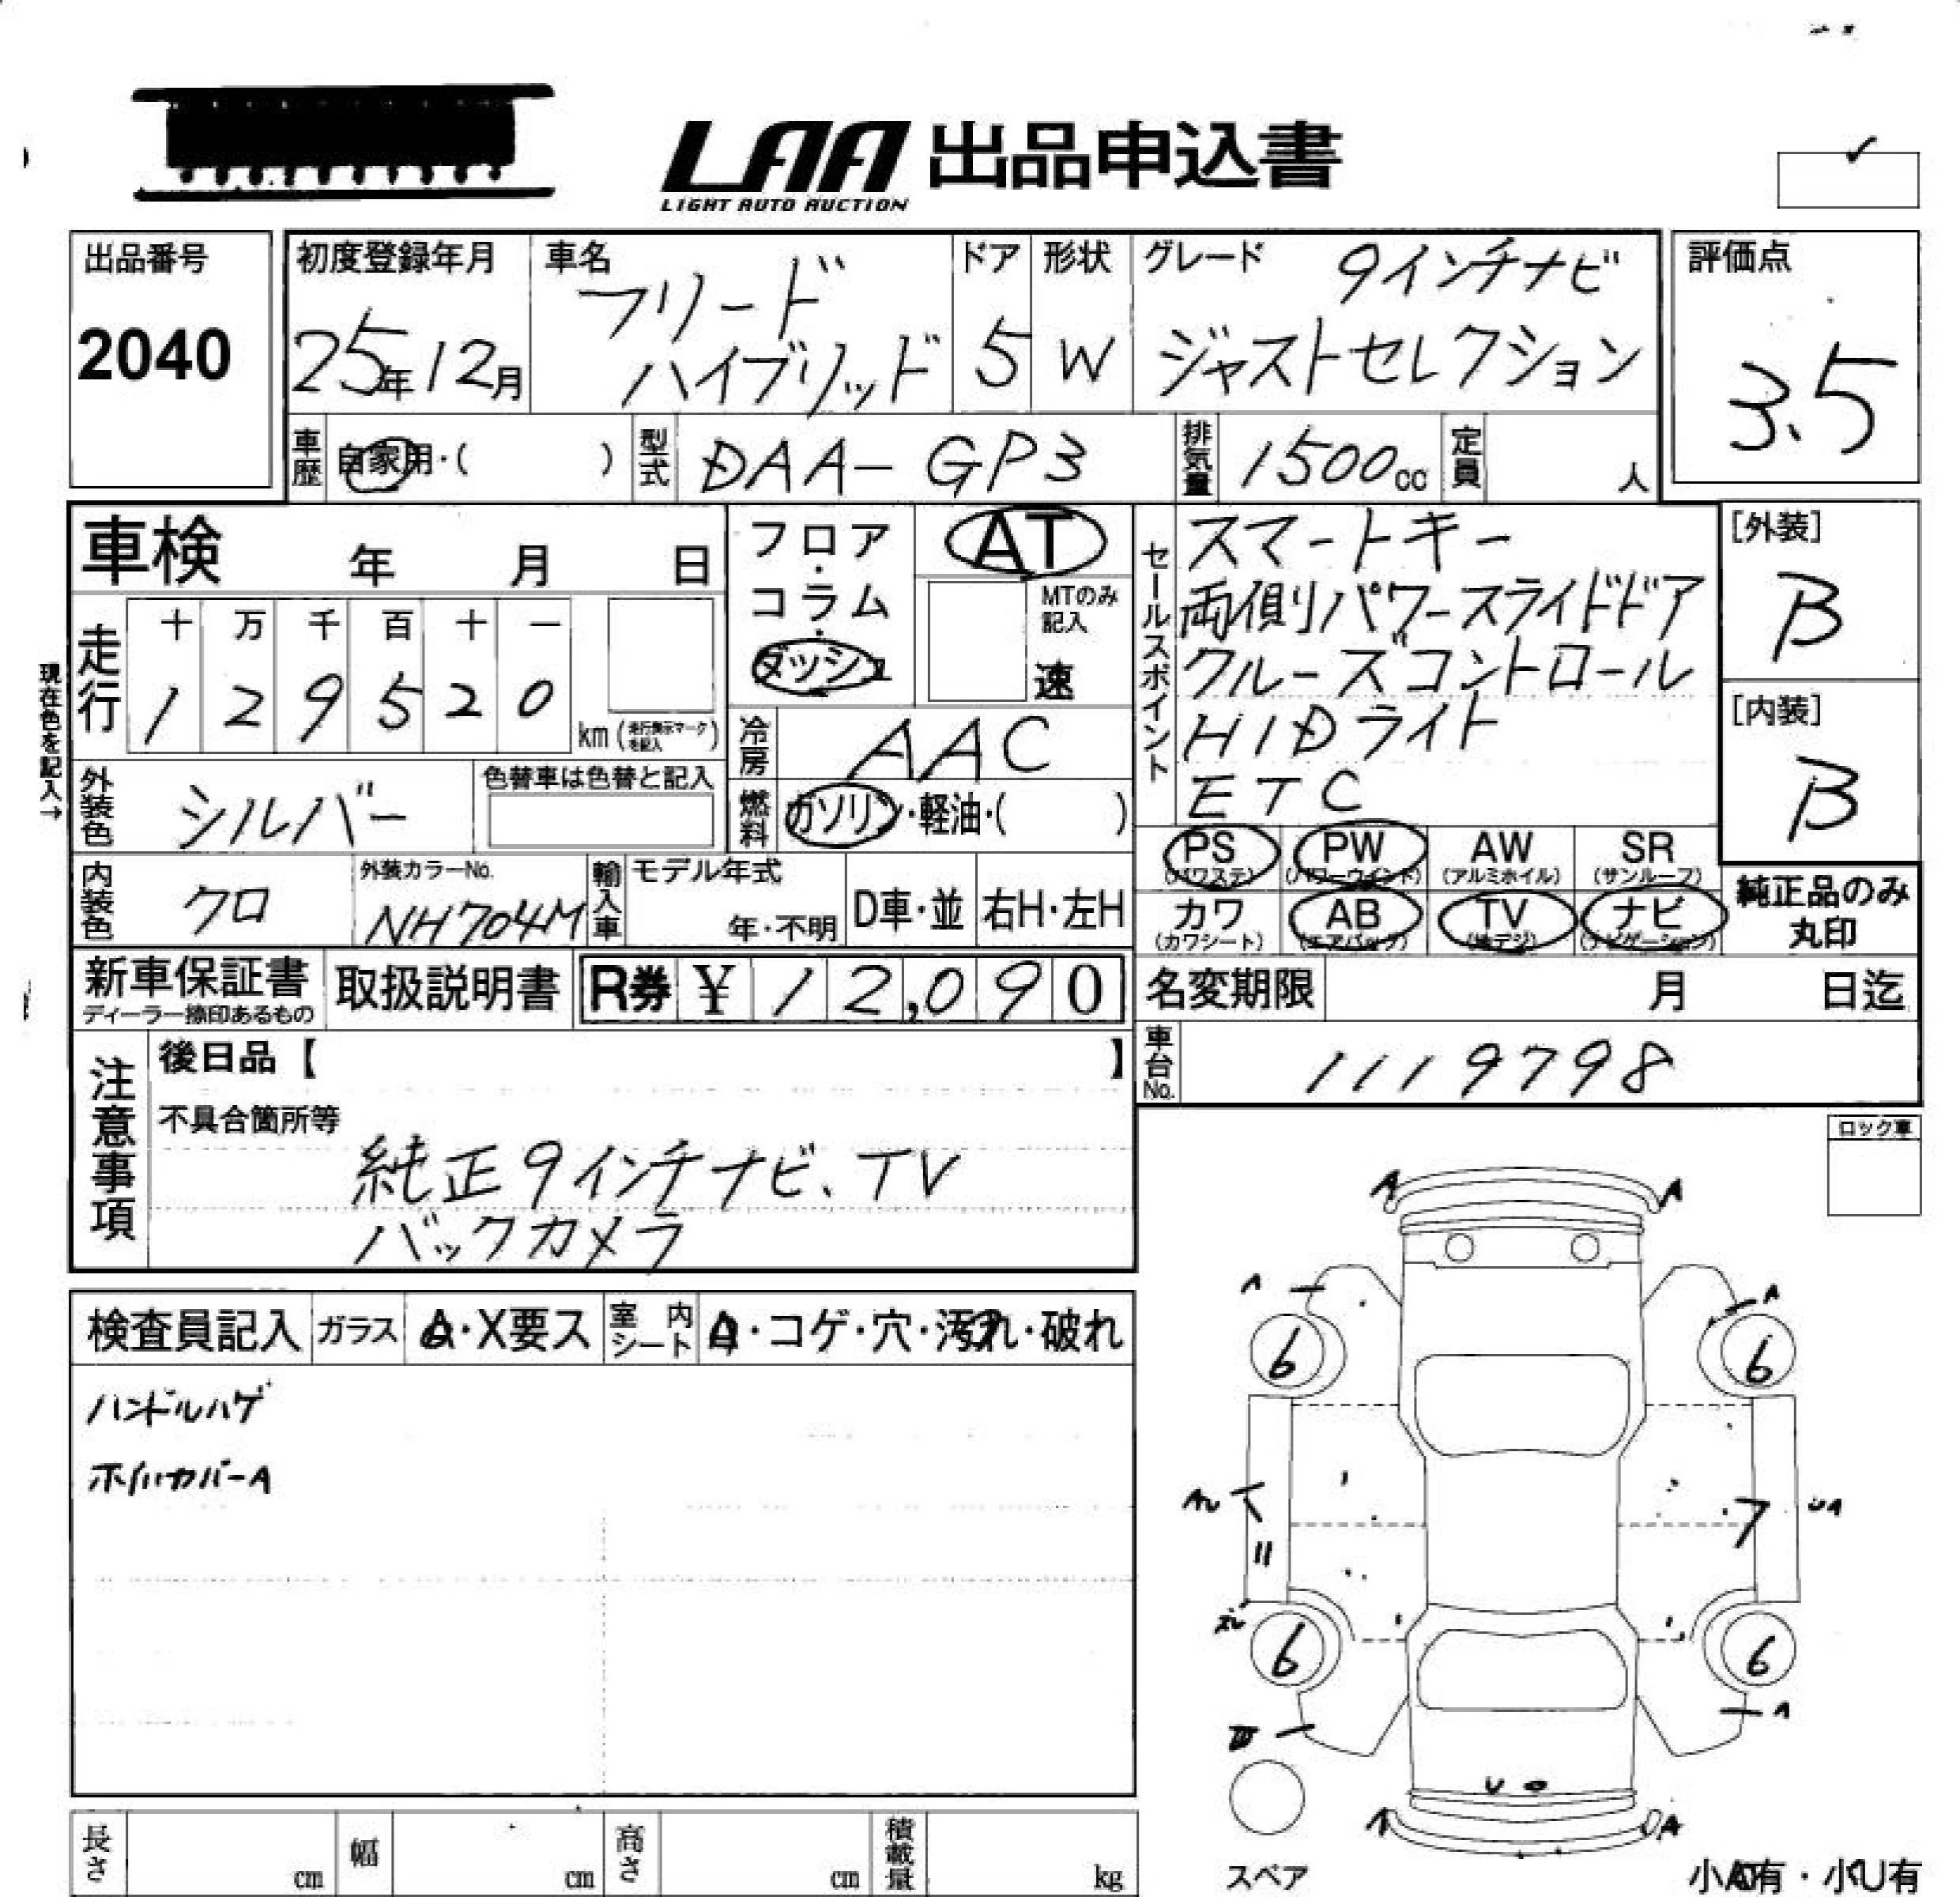 LAA 出品申込書
LIGHT AUTO AUCTION
出品番号
2040
初度登録年月
25年12月
車名
フリード
ハイブリッド
ドア
5
形状
W
グレード
9インチナビ
ジャストセレクション
評価点
3.5
車歴
自家用・( )
型式
DAA-GP3
排気量
1500cc
定員
人
車検 年 月 日
現在色を記入→
走行
十 万 千 百 十 一
1 2 9 5 2 0
km(走行表示マークを記入)
フロア・コラム・ダッシュ
AT
MTのみ記入
速
冷房
AAC
燃料
ガソリン・軽油・( )
外装色
シルバー
色替車は色替と記入
内装色
クロ
外装カラーNo.
NH704M
輸入車
モデル年式
年・不明
D車・並
右H・左H
セールスポイント
スマートキー
両側パワースライドドア
クルーズコントロール
HIDライト
ETC
[外装]
B
[内装]
B
PS (パワステ)
PW (パワーウインド)
AW (アルミホイル)
SR (サンルーフ)
カワ (カワシート)
AB (エアバッグ)
TV (地デジ)
ナビ (ナビゲーション)
純正品のみ
丸印
新車保証書
ディーラー捺印あるもの
取扱説明書
R券 ¥12,090
名変期限 月 日迄
車台No.
1119798
注意事項
後日品【 】
不具合箇所等
純正9インチナビ、TV
バックカメラ
ロック車
検査員記入
ガラス
A・X要ス
室内シート
A・コゲ・穴・汚れ・破れ
ハンドルハゲ
ホイルカバーA
A A
A A
6 6
6 6
A
A
スペア
小A有・小U有
長さ cm
幅 cm
高さ cm
積載量 kg